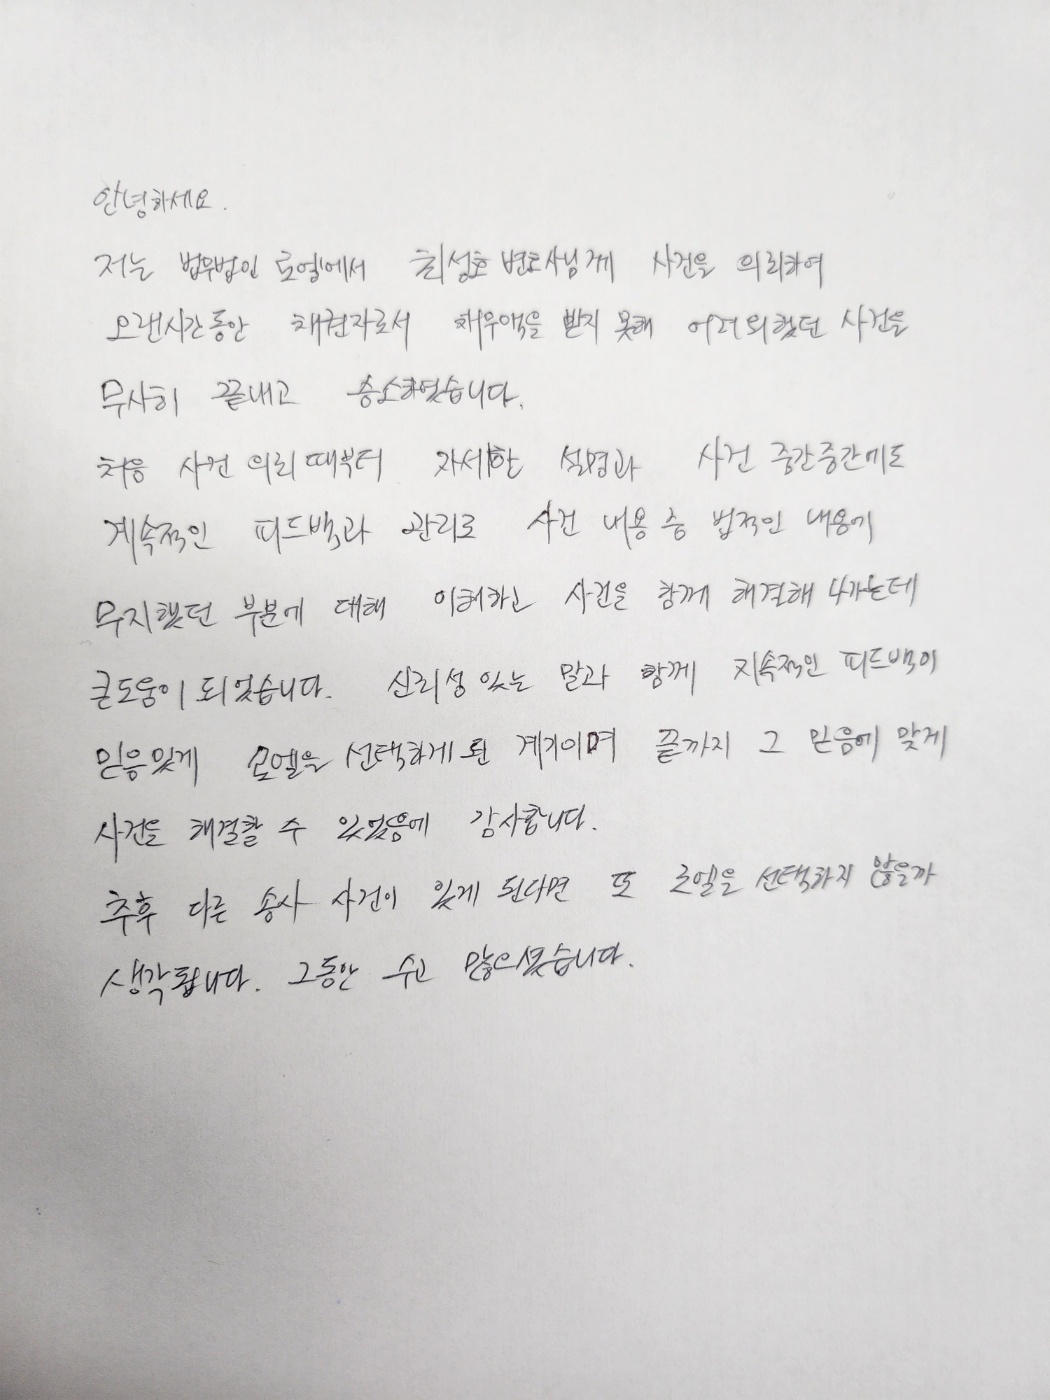 안녕하세요.
저는 법무법인 로엘에서 최성호 변호사님께 사건을 의뢰하여
오랜시간동안 채권자로서 채무액을 받지 못해 어려워했던 사건을
무사히 끝내고 승소하였습니다.
처음 사건 의뢰때부터 자세한 설명과 사건 중간중간에도
계속적인 피드백과 관리로 사건 내용 중 법적인 내용에
무지했던 부분에 대해 이해하고 사건을 함께 해결해 나가는데
큰도움이 되었습니다. 신뢰성있는 말과 함께 지속적인 피드백이
믿음있게 로엘을 선택하게된 계기이며 끝까지 그 믿음에 맞게
사건을 해결할 수 있었음에 감사합니다.
추후 다른 송사 사건이 있게 된다면 또 로엘을 선택하지 않을까
생각됩니다. 그동안 수고 많으셨습니다.